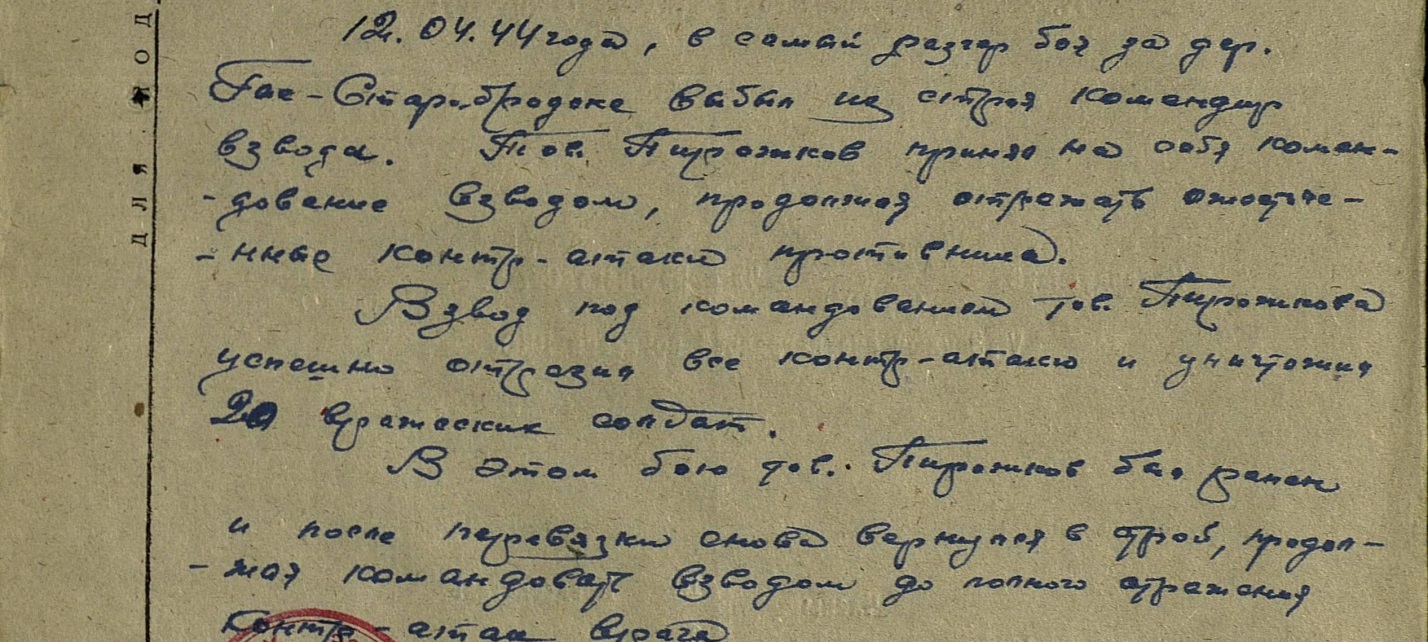 12.04.44 года, в самый разгар боя за дер.
Гае-Старобродске выбыл из строя командир
взвода. Тов. Пирожков принял на себя коман-
-дование взводом, продолжая отражать ожесточе-
-нные контр-атаки противника.
Взвод под командованием тов. Пирожкова
успешно отразил все контр-атаки и уничтожил
20 вражеских солдат.
В этом бою тов. Пирожков был ранен
и после перевязки снова вернулся в строй, продол-
-жая командовать взводом до полного отражения
контр-атак врага
ДЛЯ ПОД